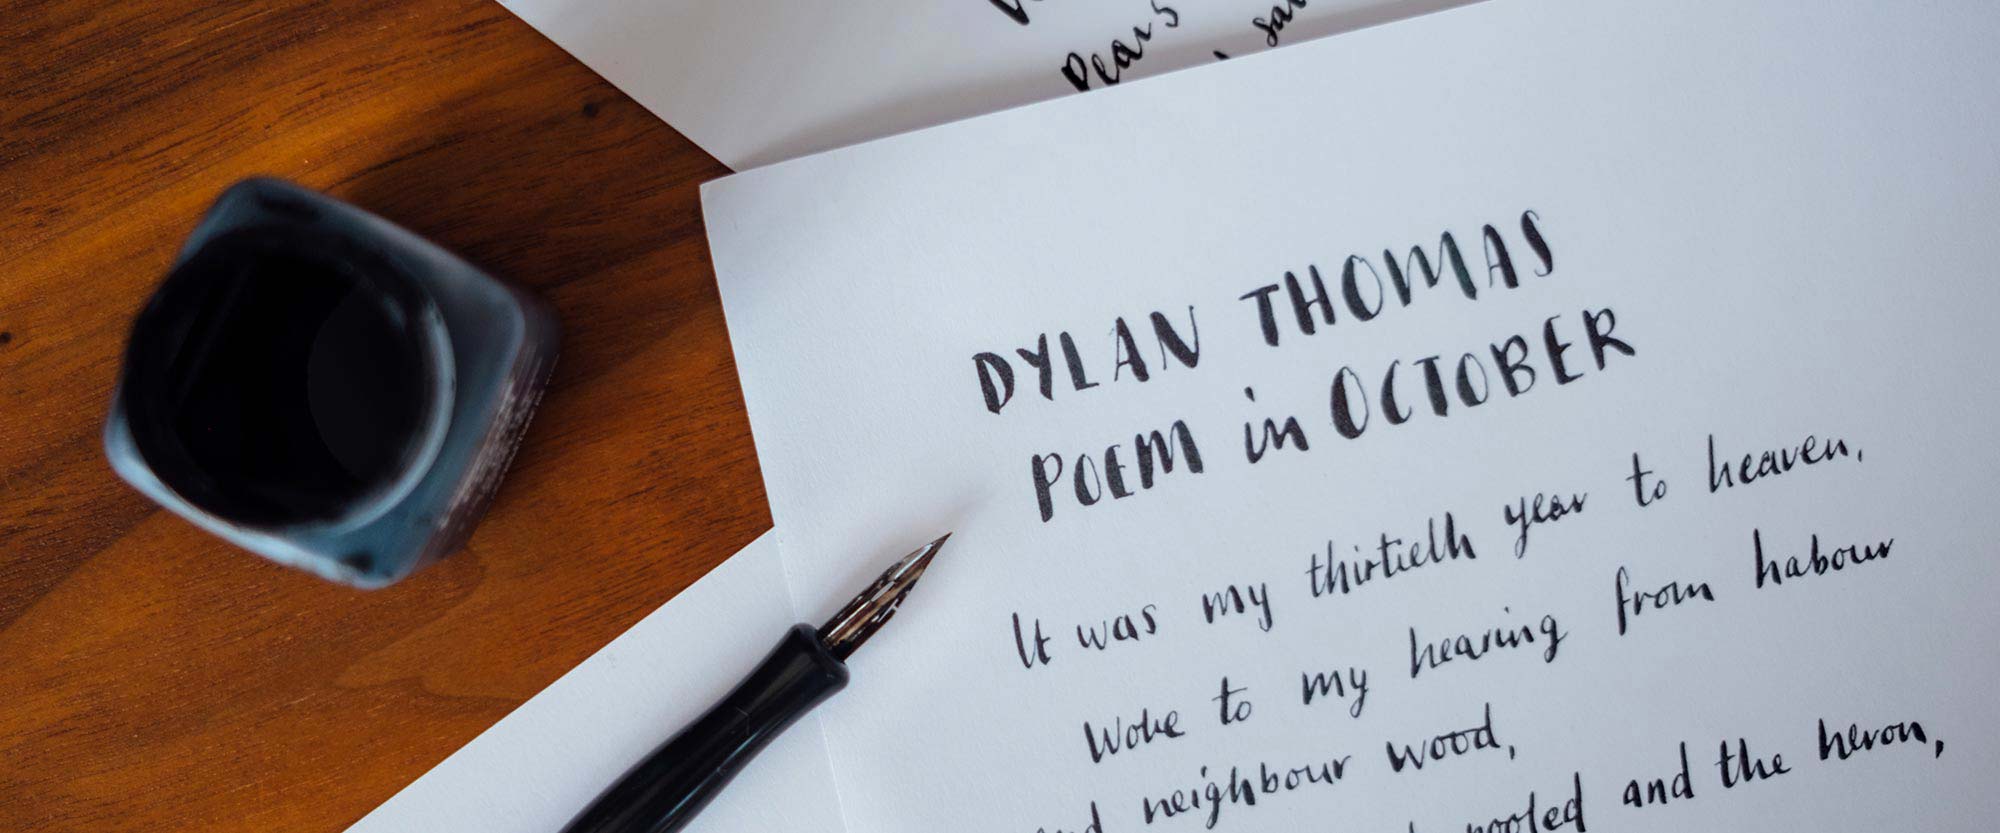 Pears
DYLAN THOMAS
POEM in OCTOBER
It was my thirtieth year to heaven,
Woke to my hearing from habour
neighbour wood,
pooled and the heron,